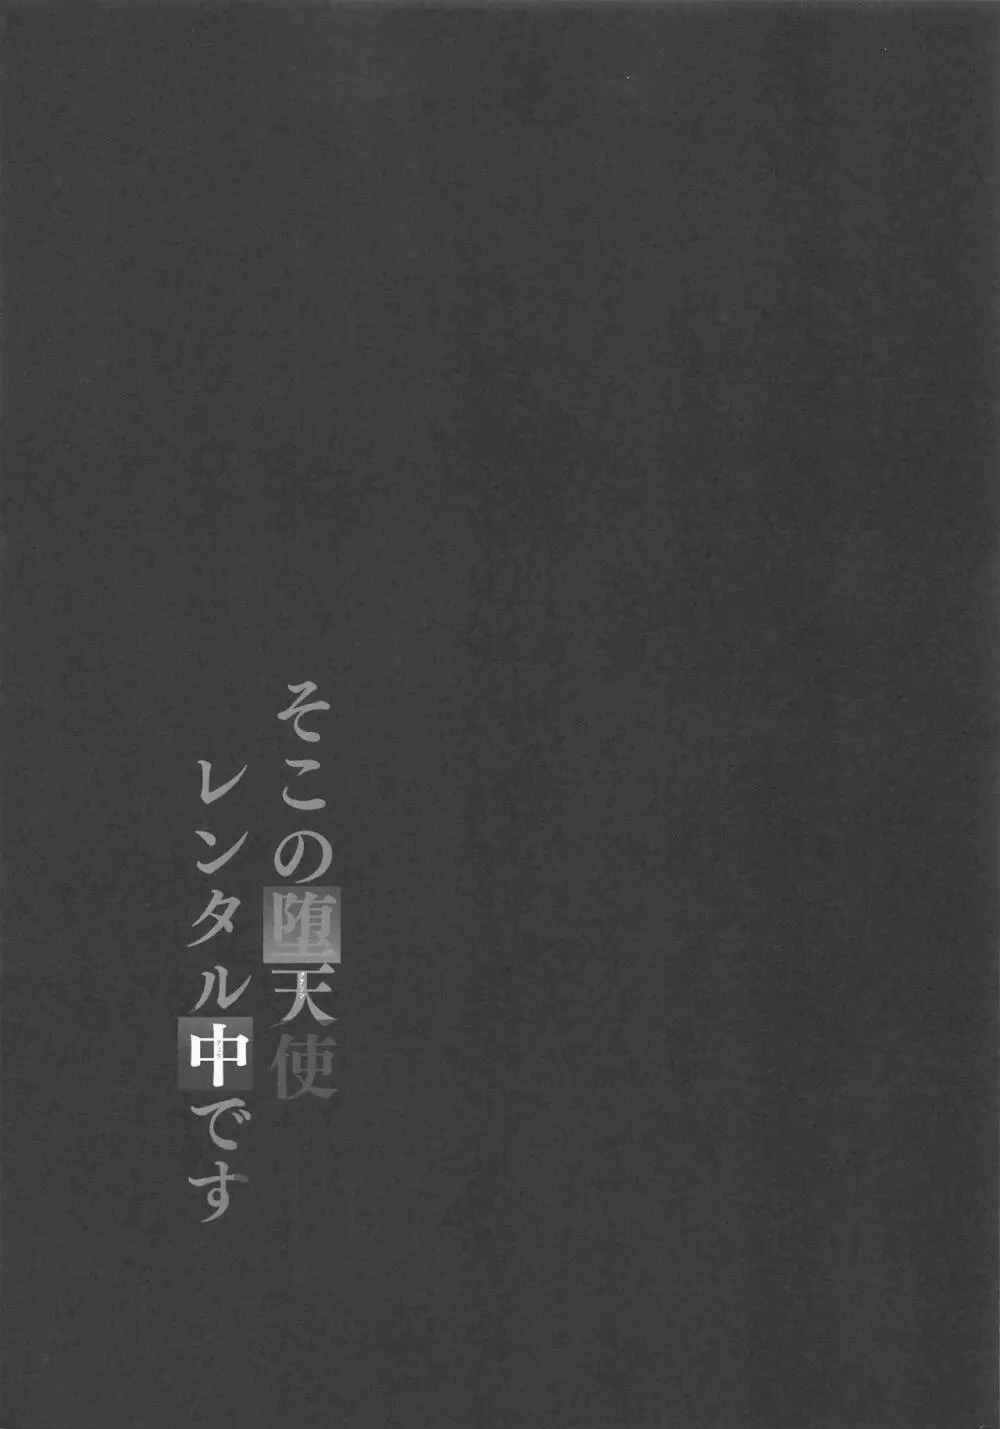 そこの堕天使
レンタル中です